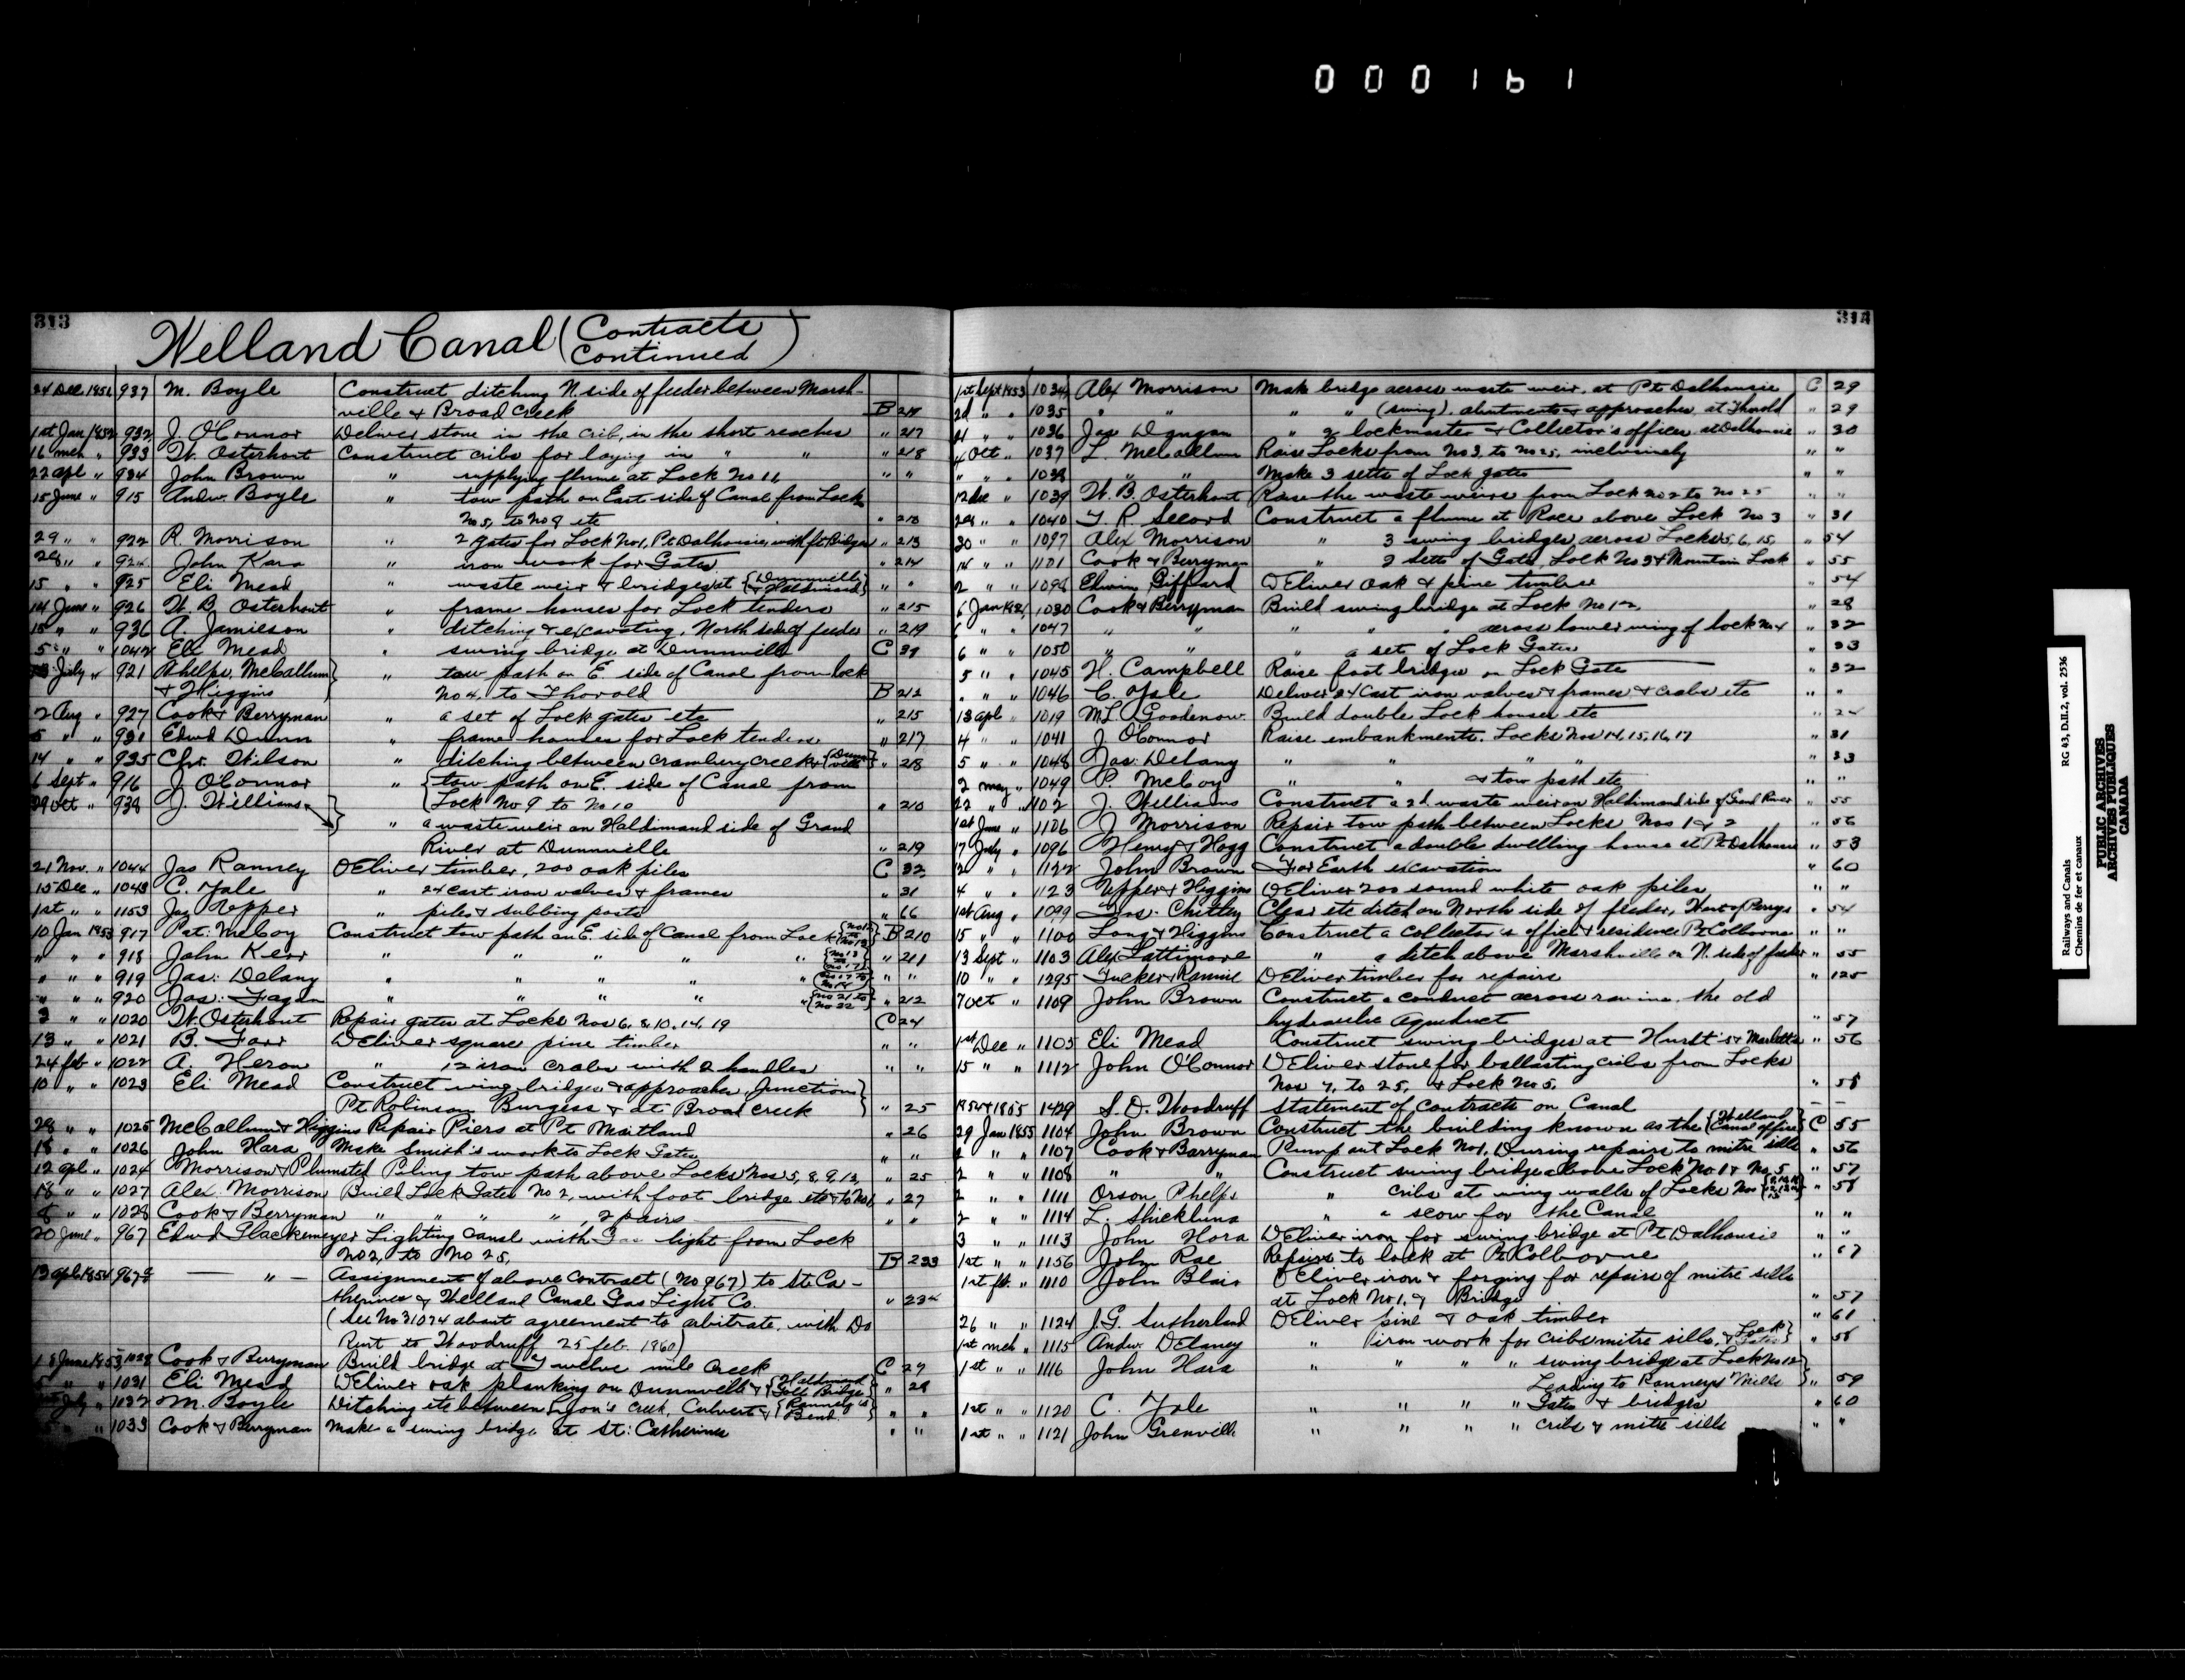 000161
313
Welland Canal (Contracts Continued)
24 Dec 1851 937 M. Boyle Construct ditching N. side of feeder between Marsh-
ville & Broad Creek B
1st Jan 1852 932 J. O'Connor Deliver stone in the crib, in the short reaches " 217
16 mch " 933 W. Osterhout Construct cribs for laying in " " " 218
22 apl " 934 John Brown " supplying flume at Lock No 11 " "
15 June " 915 Andw. Boyle " tow path on East side of Canal from Lock
No 5, to No 8 etc "
29 " " 922 R. Morrison " 2 gates for Lock No 1, Pt Dalhousie, with ft Bridges " 213
28 " " John Kara " iron work for Gates " 214
15 " " 925 Eli Mead " waste weir & bridges at {Dunnville & Haldimand} " "
14 June " 926 W. B. Osterhout " frame houses for Lock tenders " 215
15 " " 936 A. Jamieson " ditching & excavating, North side of feeder " 219
5 " " 1042 Eli Mead " swing bridge at Dunnville C 31
July " 921 Phelps, McCallum } " tow path on E. side of Canal from lock
& Higgins No 4, to Thorold B 212
2 Aug " 927 Cook & Berryman " a set of Lock gates etc " 215
5 " " 931 Edwd Dunn " frame houses for Lock tenders " 217
14 " " 935 Chr. Wilson " ditching between cranberry Creek & {Dunnville} " 218
6 Sept " 916 J. O'Connor " {tow path on E. side of Canal from
29 Oct " 938 J. Williams } Lock No 9 to No 10 " 210
" a waste weir on Haldimand side of Grand
River at Dunnville " 219
21 Nov. " 1044 Jas Ranney Deliver timber, 200 oak piles C 32
15 Dec " 1043 C. Yale " 24 cast iron valves & frames " 31
1st " " 1153 Jas Upper " piles & subbing posts " 66
10 Jan 1853 917 Pat. McCoy Construct tow path on E. side of Canal from Lock B 210
" " " 918 John Kerr " " " " " " 211
" " " 919 Jas: Delany " " " " " " "
" " " 920 Jas: Fagen " " " " " {No 21 to No 22} " 212
3 " " 1020 W. Osterhout Repair gates at Locks Nos 6, 8, 10, 14, 19 C 24
13 " " 1021 B. Farr Deliver square pine timber " "
24 feb " 1022 A. Heron " 12 iron crabs with 2 handles " "
10 " " 1023 Eli Mead Construct wing bridges & approaches, Junction }
Pt Robinson Burgess & at Broad Creek " 25
28 " " 1025 McCallum & Higgins Repair Piers at Pt Maitland " 26
18 " " 1026 John Hara Make Smith's work to Lock Gates " "
12 apl " 1024 Morrison & Plumsted Piling tow path above Locks Nos 5, 8, 9, 12, " 25
18 " " 1027 Alex. Morrison Build Lock Gates No 2, with foot bridge etc & to No 1 " 27
8 " " 1028 Cook & Berryman " " " ", 2 pairs " "
20 June " 967 Edwd Glackemeyer Lighting Canal with Gas light from Lock
No 2, to No 25, B 233
13 apl 1854 967 — " — Assignment of above contract (No 967) to St. Ca-
therines & Welland Canal Gas Light Co. " 234
(See No 31074 about agreement to arbitrate, with Do
Rent to Woodruff 25 feb. 1860)
18 June 1853 Cook & Berryman Build bridge at Twelve mile Creek C 27
" " 1031 Eli Mead Deliver oak planking on Dunnville & {Haldimand Toll Bridge} " 28
July " 1032 M. Boyle Ditching etc between Lyon's Creek, Culvert & {Ranney's Bend} " "
" " 1033 Cook & Berryman Make a swing bridge at St: Catherines " "
314
1st Sept 1853 1034 Alex Morrison Make bridge across waste weir, at Pt Dalhousie C 29
2d " " 1035 " " " " (swing), abutments & approaches, at Thorold " 29
21 " " 1036 Jas Dgugan " 2 lockmaster & Collector's offices at Dalhousie " 30
4 Oct " 1037 L. McCallum Raise Locks from No 3, to No 25, inclusively " "
" " " 1038 " " Make 3 setts of Lock gates " "
12 Dec " 1039 W. B. Osterhout Raise the waste weirs from Lock No 2 to No 25 " "
28 " " 1040 T. R. Secord Construct a flume at Race above Lock No 3 " 31
30 " " 1097 Alex Morrison " 3 swing bridges across Locks 5, 6, 15, " 54
14 " " 1101 Cook & Berryman " 2 Setts of Gates, Lock No 3 & Mountain Lock " 55
2 " " 1098 Elwin Gifford Deliver oak & pine timber " 54
6 Jan 1854 1030 Cook & Berryman Build swing bridge at Lock No 12, " 28
6 " " 1047 " " " " " across lower wing of lock No 4 " 32
6 " " 1050 " " " a set of Lock Gates " 33
5 " " 1045 H. Campbell Raise foot bridges on Lock Gate " 32
" " " 1046 C. Yale Deliver 24 Cast iron valves & frames & crabs etc " "
13 apl " 1019 M. L. Goodenow Build double Lock houses etc " 24
4 " " 1041 J O'Connor Raise embankments. Locks Nos 14, 15, 16, 17 " 31
5 " " 1048 Jas: Delany " " " " " 33
2 may " 1049 P. McCoy " " & tow path etc " "
22 " " 1102 J. Williams Construct a 2d waste weir on Haldimand side of Grand River " 55
1st June " 1106 J Morrison Repair tow path between Locks Nos 1 & 2 " 56
17 July " 1096 Henry & Hogg Construct a double dwelling house at Pt Dalhousie " 53
2 " " 1122 John Brown For Earth excavation " 60
4 " " 1123 Upper & Higgins Deliver 200 sound white oak piles " "
1st Aug " 1099 Chittey Clear etc ditch on North side of feeder, West of Perrys " 54
15 " " 1100 Long & Higgins Construct a collector's office & residence Pt Colborne " "
13 Sept " 1103 Alex Lattimore " a ditch above Marshville on N. side of feeder " 55
10 " " 1295 Tucker & Rannie Deliver timber for repairs " 125
7 Oct " 1109 John Brown Construct a conduct across ravine, the old
hydraulic Aqueduct " 57
1st Dec " 1105 Eli Mead Construct swing bridges at Hurdt's & Marlatts " 56
15 " " 1112 John O'Connor Deliver stone for ballasting cribs from Locks
Nos 7, to 25, & Lock No 5, " 58
1854 & 1855 1429 S. D. Woodruff Statement of contracts on Canal — —
29 Jan 1855 1104 John Brown Construct the building known as the {Welland Canal office} C 55
2 " " 1107 Cook & Barryman Pump out Lock No 1, During repairs to mitre sills " 56
2 " " 1108 " " Construct swing bridge above Lock No 1 & No 5 " 57
2 " " 1111 Orson Phelps " cribs at wing walls of Locks Nos " 58
2 " " 1114 L. Shickluna " a scow for the Canal " "
3 " " 1113 John Hora Deliver iron for swing bridge at Pt Dalhousie " "
1st " " 1156 John Rae Repairs to lock at Pt Colborne " 67
1st feb. " 1110 John Blair Deliver iron & forging for repairs of mitre sills
at Lock No 1, & Bridge " 57
26 " " 1124 J. G. Sutherland Deliver pine & oak timber " 61
1st mch " 1115 Andw. Delaney " iron work for cribs mitre sills, & {Lock Gates} " 58
1st " " 1116 John Hara " " " " swing bridge at Lock No 12 }
Leading to Ranneys Mills } " 59
1st " " 1120 C. Yale " " " " Gates & bridges " 60
1st " " 1121 John Grenville " " " " cribs & mitre sills " "
Railways and Canals RG 43, D.II.2, vol. 2536
Chemins de fer et canaux
PUBLIC ARCHIVES
ARCHIVES PUBLIQUES
CANADA